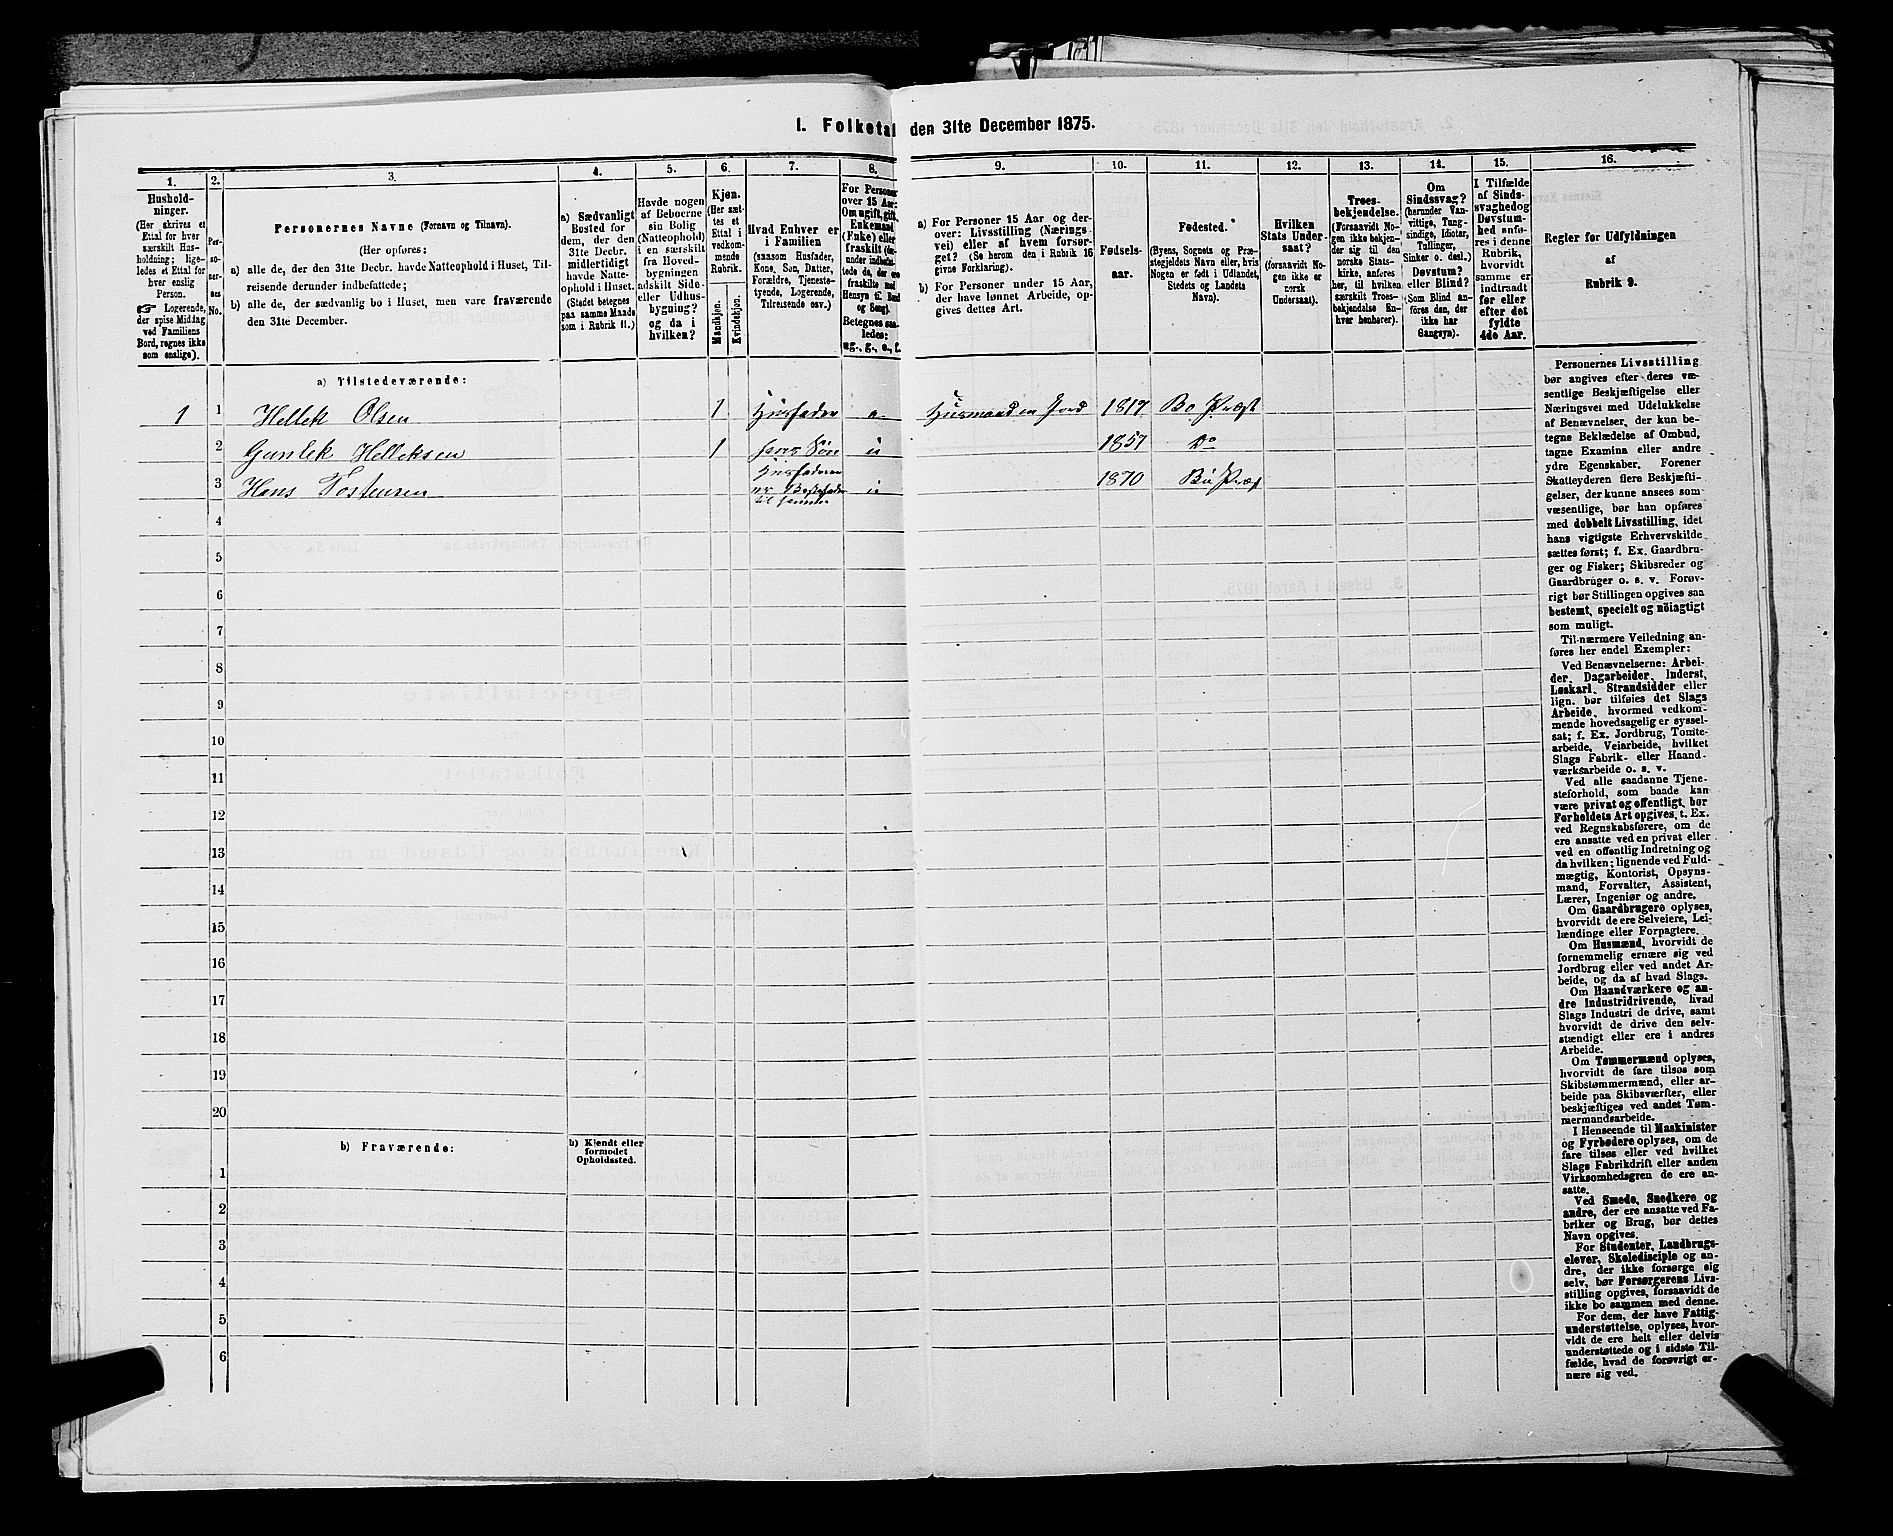 1. Folketal den 31te December 1875.
1. 2. 3. 4. 5. 6. 7. 8. 9. 10. 11. 12. 13. 14. 15. 16.
Hushold-
ninger.
(Her skrives et
Ettal for hver
særskilt Hus-
holdning; lige-
ledes et Ettal for
hver enslig
Person.
☞ Logerende,
der spise Middag
ved Familiens
Bord, regnes ikke
som enslige).
Per-
so-
ner-
nes
No.
Personernes Navne (Fornavn og Tilnavn).
(Her opføres:
a) alle de, der den 31te Decbr. havde Natteophold i Huset, Til-
reisende derunder indbefattede;
b) alle de, der sædvanlig bo i Huset, men vare fraværende
den 31te December.
a) Sædvanligt
Bosted for
dem, der den
31te Decbr.
midlertidigt
havde Natte-
ophold i Huset.
(Stedet betegnes
paa samme Maade
som i Rubrik 11.)
Havde nogen
af Beboerne
sin Bolig
(Natteophold)
i en særskilt
fra Hoved-
bygningen
adskilt Side-
eller Udhus-
bygning?
og da i
hvilken?
Kjøn.
(Her sæt-
tes et
Ettal i
vedkom-
mende
Rubrik.
Mandkjøn.
Kvindekjøn.
Hvad Enhver er
i Familien
(saasom Husfader,
Kone, Søn, Datter,
Forældre, Tjeneste-
tyende, Logerende,
Tilreisende osv.)
For Personer
over 15 Aar:
Om ugift, gift,
Enkemand
(Enke) eller
fraskilt (der-
under indbefat-
tede de, der ere
fraskilte med
Hensyn til Bord
og Seng).
Betegnes saa-
ledes:
ug., g., e., f.
a) For Personer 15 Aar og der-
over: Livsstilling (Nærings-
vei) eller af hvem forsør-
get? (Se herom den i Rubrik 16
givne Forklaring).
b) For Personer under 15 Aar,
der have lønnet Arbeide, op-
gives dettes Art.
Fødsels-
aar.
Fødested.*
(Byens, Sognets og Præ-
stegjeldets Navn eller, hvis
Nogen er født i Udlandet,
Stedets og Landets
Navn).
Hvilken
Stats Under-
saat?
(forsaavidt No-
gen ikke er
norsk
Undersaat).
Troes-
bekjendelse.
(Forsaavidt No-
gen ikke bekjen-
der sig til den
norske Stats-
kirke, anføres
her, til hvilken
særskilt Troes-
bekjendelse En-
hver henhører).
Om
Sindssvag?
(herunder Van-
vittige, Tung-
sindige, Idioter,
Tullinger,
Sinker o. desl.)
Døvstum?
eller Blind?
(Som Blind an-
føres den, der
ikke har
Gangsyn).
I Tilfælde
af Sinds-
svaghed og
Døvstum-
hed anfø-
res i denne
Rubrik,
hvorvidt
samme er
indtraadt
før eller
efter det
fyldte
4de Aar.
Regler for Udfyldningen
af
Rubrik 9.
a) Tilstedeværende:
1 1 Hellek Olsen 1 Husfader e Husmand m Jord 1817 Bø Præst
2 Gunlek Helleksen 1 hans Søn u 1857 Do
3 Hans Tostensen Husfaderen er Bestefader til 1870 Bø Præst
4
5
6
7
8
9
10
11
12
13
14
15
16
17
18
19
20
b) Fraværende:
b) Kjendt eller
formodet
Opholdssted.
1
2
3
4
5
6
Personernes Livsstilling
bør angives efter deres væ-
sentlige Beskjæftigelse eller
Næringsvei med Udelukkelse
af Benævnelser, der kun be-
tegne Beklædelse af Ombud,
tagne Examina eller andre
ydre Egenskaber. Forener
Skatteyderen flere Beskjæfti-
gelser, der kunne ansees som
væsentlige, bør han opføres
med dobbelt Livsstilling, idet
hans vigtigste Erhvervskilde
sættes først; f. Ex. Gaardbru-
ger og Fisker; Skibsreder og
Gaardbruger o. s. v. Forøv-
rigt bør Stillingen opgives saa
bestemt, specielt og nöiagtigt
som muligt.
Til nærmere Veiledning an-
føres her endel Exempler:
Ved Benævnelserne: Arbei-
der, Dagarbeider, Inderst,
Løskarl, Strandsidder eller
lign. bør tilføies det Slags
Arbeide, hvormed vedkom-
mende hovedsagelig er syssel-
sat; f. Ex. Jordbrug, Tomte-
arbeide, Veiarbeide, hvilket
Slags Fabrik- eller Haand-
værksarbeide o. s. v.
Ved alle saadanne Tjene-
steforhold, som baade kan
være privat og offentligt, bør
Forholdets Art opgives, t. Ex.
ved Regnskabsførere, om de
ere ansatte ved en privat eller
ved en offentlig Indretning og
da hvilken; lignende ved Fuld-
mægtig, Kontorist, Opsyns-
mand, Forvalter, Assistent,
Lærer, Ingeniør og andre.
Om Gaardbrugere oplyses,
hvorvidt de ere Selveiere, Lei-
lændinge eller Forpagtere.
Om Husmænd, hvorvidt de
fornemmelig ernære sig ved
Jordbrug eller ved andet Ar-
beide, og da af hvad Slags.
Om Haandværkere og an-
dre Industridrivende, hvad
Slags Industri de drive, samt
hvorvidt de drive den selv-
stændigt eller ere i andres
Arbeide.
Om Tømmermænd oplyses,
hvorvidt de fare tilsøs som
Skibstømmermænd, eller ar-
beide paa Skibsværfter, eller
beskjæftiges ved andet Tøm-
mermandsarbeide.
I Henseende til Maskinister
og Fyrbødere oplyses, om de
fare tilsøs eller ved hvilket
Slags Fabrikdrift eller anden
Virksomhedsgren de ere an-
satte.
Ved Smede, Snedkere og
andre, der ere ansatte ved Fa-
briker og Brug, bør dettes
Navn opgives.
For Studenter, Landbrugs-
elever, Skoledisciple og an-
dre, der ikke forsørge sig
selv, bør Forsørgerens Livs-
stilling opgives, forsaavidt de
ikke bo sammen med denne.
For dem, der have Fattig-
understøttelse, oplyses, hvor-
vidt de ere helt eller delvis
understøttede og i sidste Til-
fælde, hvad de forøvrigt er-
nære sig ved.